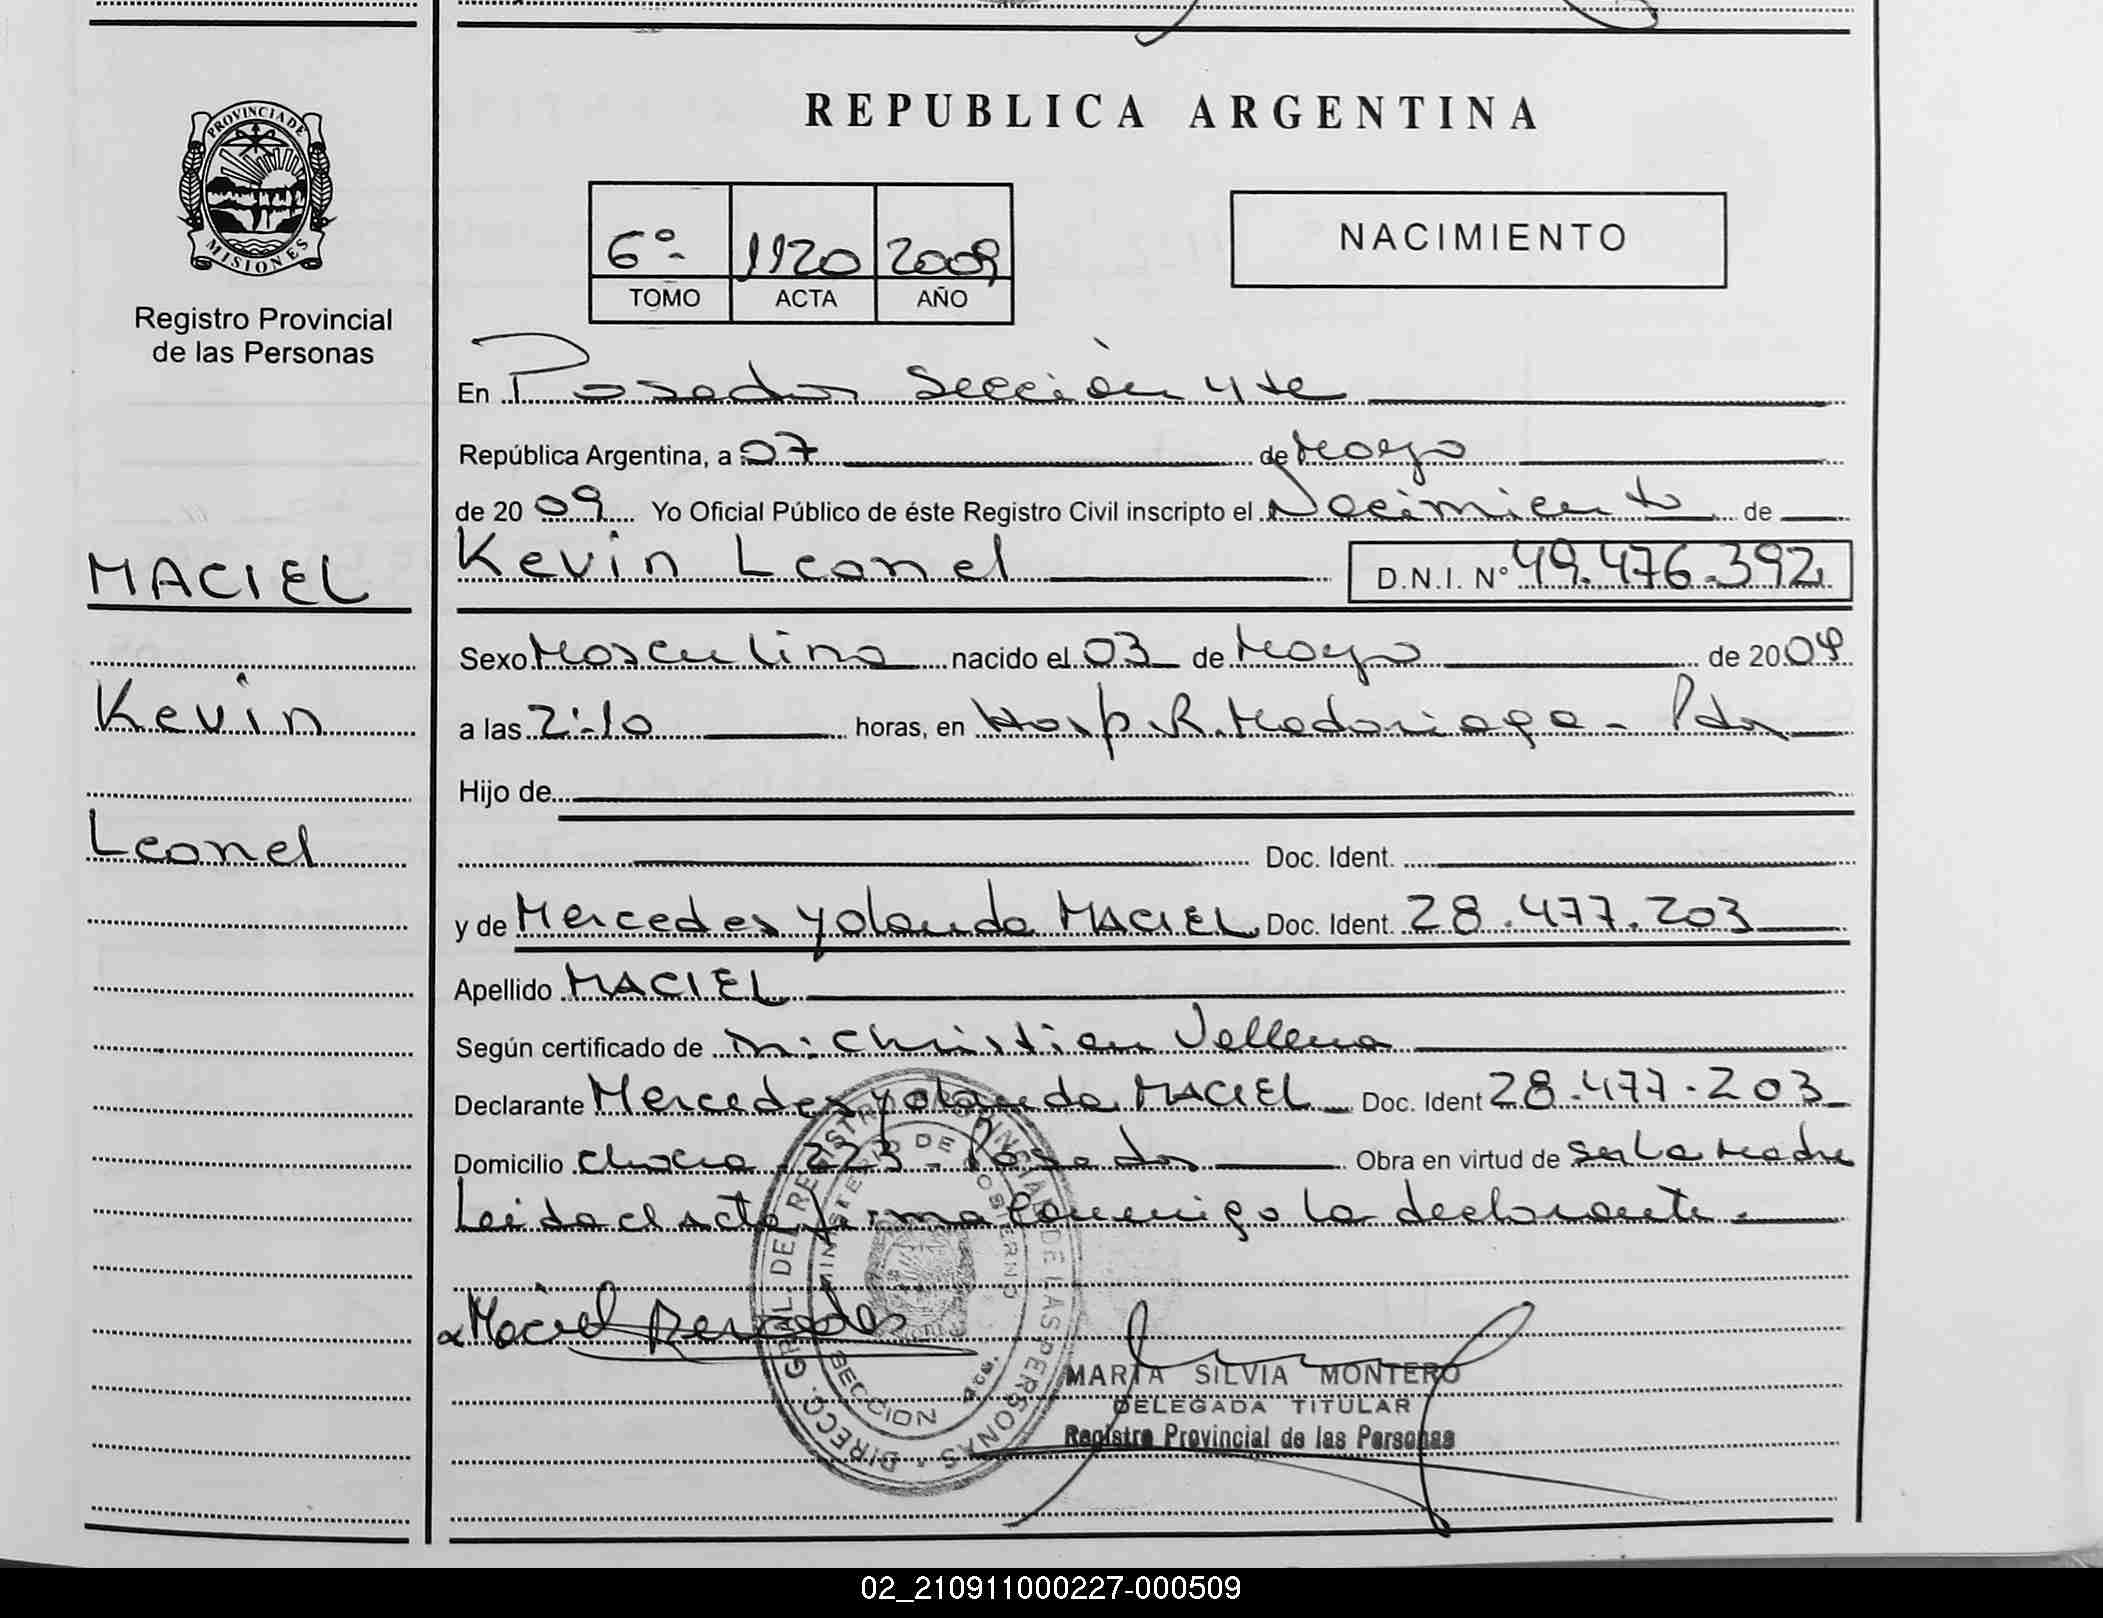 REPUBLICA ARGENTINA
PROVINCIA DE
MISIONES
Registro Provincial
de las Personas
6º- 1120 2009
TOMO ACTA AÑO
NACIMIENTO
En Posadas Sección 4ta
República Argentina, a 07 de Mayo
de 2009 Yo Oficial Público de éste Registro Civil inscripto el Nacimiento de
MACIEL
Kevin
Leonel
Kevin Leonel D.N.I. Nº 49.476.392
Sexo Masculino nacido el 03 de Mayo de 2009
a las 2:10 horas, en Hosp. R. Madariaga - Pdas
Hijo de
Doc. Ident.
y de Mercedes Yolanda MACIEL Doc. Ident. 28.477.203
Apellido MACIEL
Según certificado de Christian
Declarante Mercedes Yolanda MACIEL Doc. Ident 28.477.203
Domicilio 223 - Posadas Obra en virtud de ser la madre
Leida el acta firma conmigo la declarante.
Maciel Mercedes
DIRECC. GRAL. DEL REGISTRO PROVINCIAL DE LAS PERSONAS
MINISTERIO DE GOBIERNO
SECCION 4ta.
MARTA SILVIA MONTERO
DELEGADA TITULAR
Registro Provincial de las Personas
02_210911000227-000509